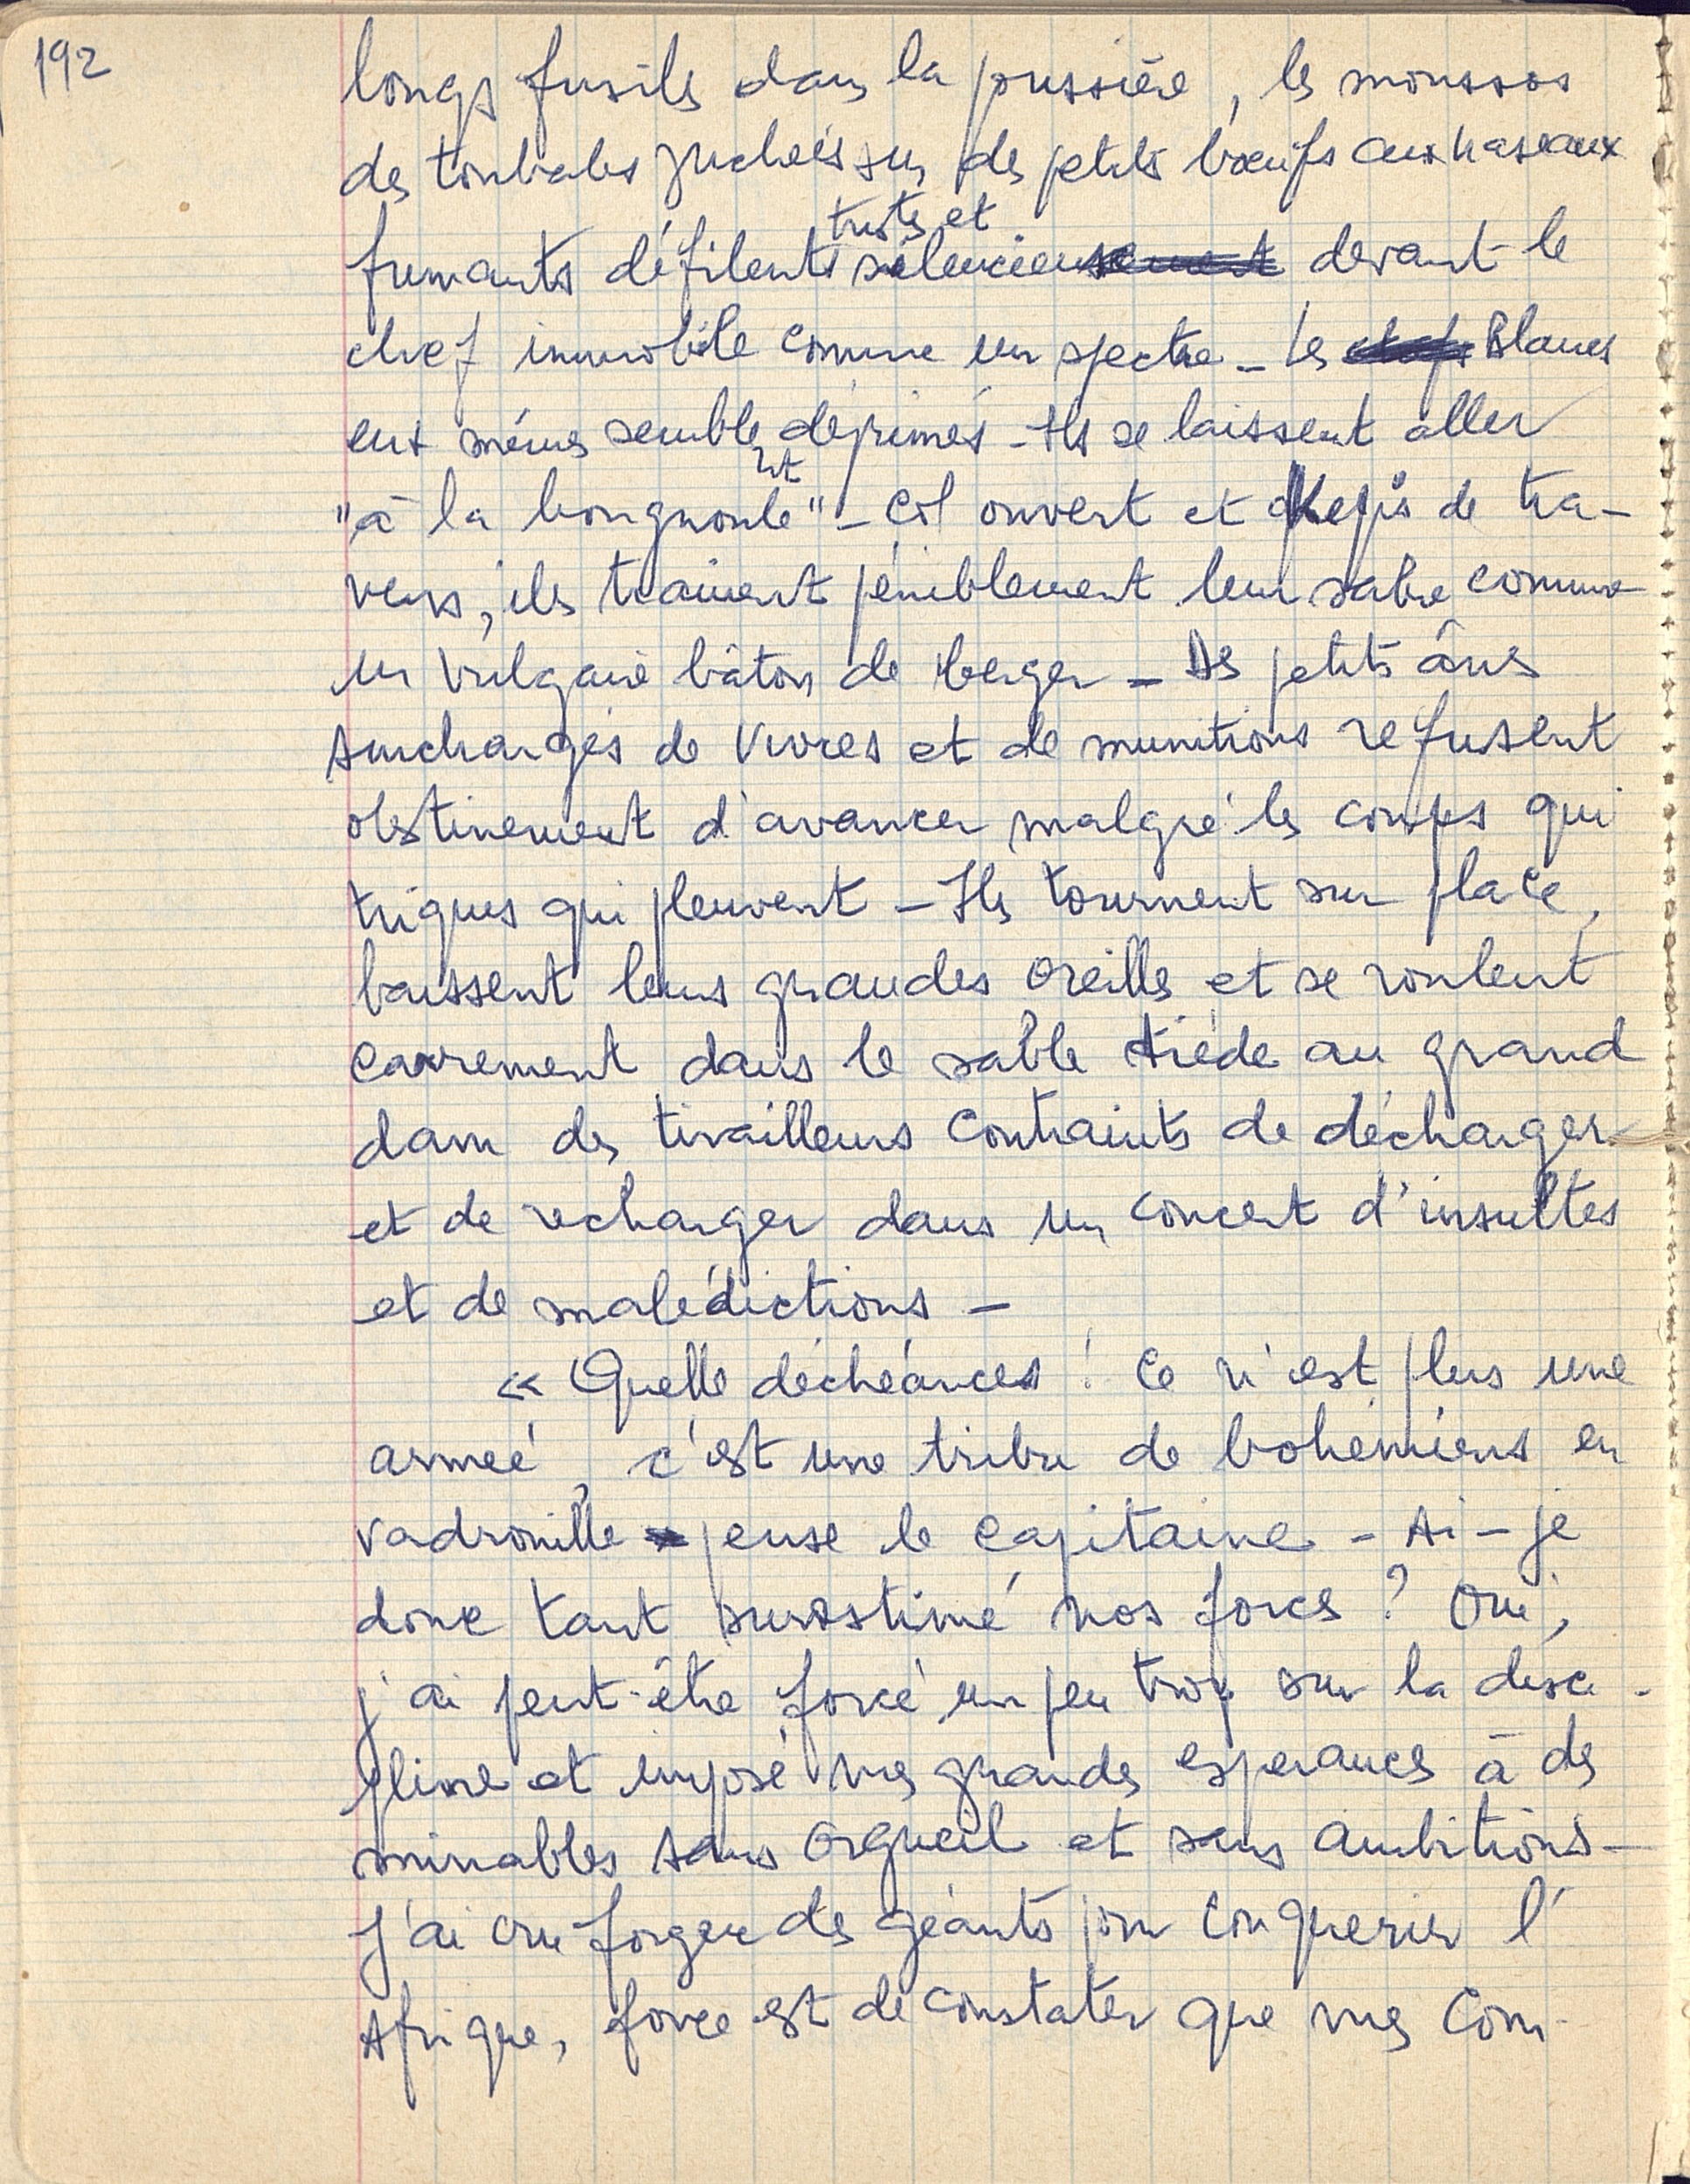 192
longs fusils dans la poussière, les moussos
des toubabs juchées sur des petits bœufs aux naseaux
tristes et
fumants défilent silencieusement devant le
chef immobile comme un spectre – Les Blancs
eux mêmes semblent déprimés – Ils se laissent aller
"à la bougnoule" – Col ouvert et Kepis de tra-
vers, ils trainent péniblement leur sabre comme
un vulgaire bâton de berger – Des petits ânes
surchargés de vivres et de munitions refusent
obstinement d'avancer malgré les coups qui
triques qui pleuvent – Ils tournent sur place,
baissent leurs grandes oreilles et se roulent
carrement dans le sable tiède au grand
dam des tirailleurs contraints de décharger
et de recharger dans un concert d'insultes
et de malédictions –
« Quelle déchéances ! Ce n'est plus une
armeé, c'est une tribu de bohémiens en
vadrouille pense le capitaine – Ai-je
donc tant surestimé nos forces ? Oui,
j'ai peut-être forcé un peu trop sur la disci-
pline et imposé mes grandes esperances à des
minables sans orgueil et sans ambitions –
J'ai cru forger des géants pour conquerir l'
Afrique, force est de constater que mes com-